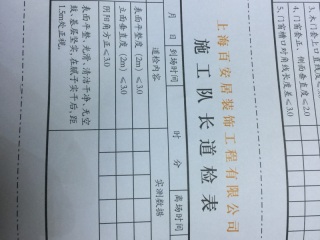 3、木门套上口直线度
4、门窗套正、侧面垂直度≤2.0
5、门窗槽口对角线长度差≤3.0
上海百安居装饰工程有限公司
施工队长道检表
月 日 到场时间 时 分 离场时间
道检内容 实测数据
表面平整度（2m）≤3.0
立面垂直度（2m）≤3.0
阴阳角方正≤3.0
表面平整、光滑、清洁干净，无空
鼓，基层坚实，在腻子实干后，距
1.5m处正视。